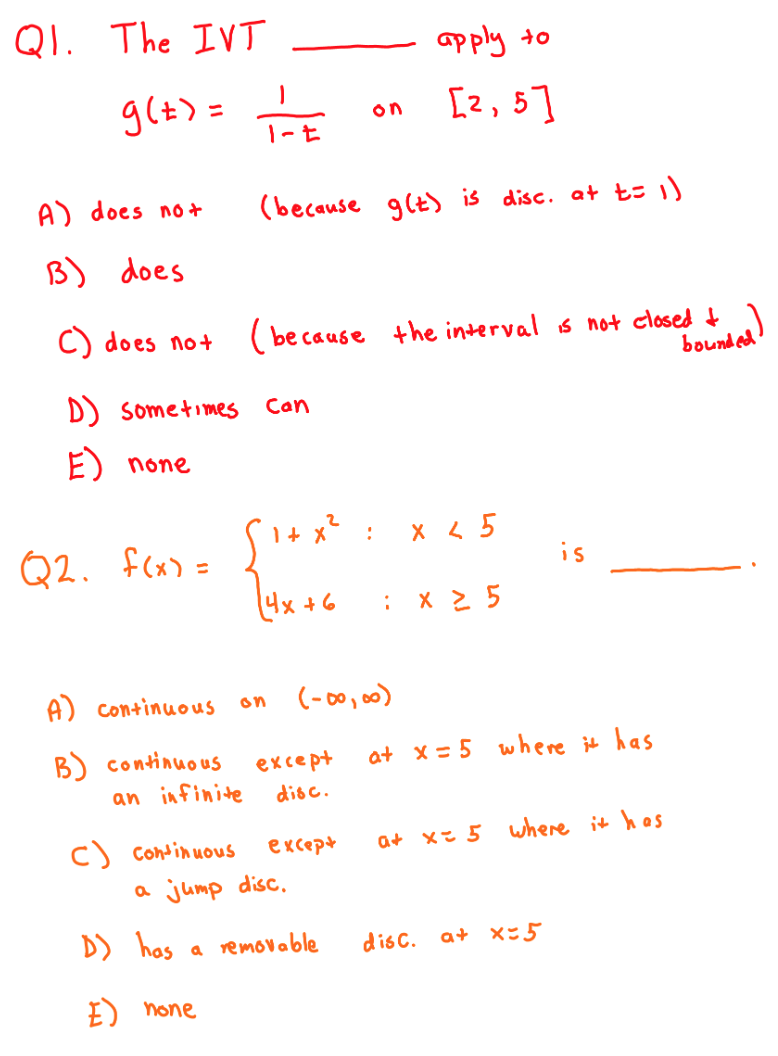 Q1. The IVT ______ apply to
g(t) = 1/(1-t) on [2, 5]
A) does not (because g(t) is disc. at t= 1)
B) does
C) does not (because the interval is not closed + bounded)
D) sometimes can
E) none
Q2. f(x) = { 1 + x² : x < 5
4x + 6 : x ≥ 5 is ______.
A) continuous on (-∞,∞)
B) continuous except at x = 5 where it has
an infinite disc.
C) continuous except at x = 5 where it has
a jump disc.
D) has a removable disc. at x=5
E) none